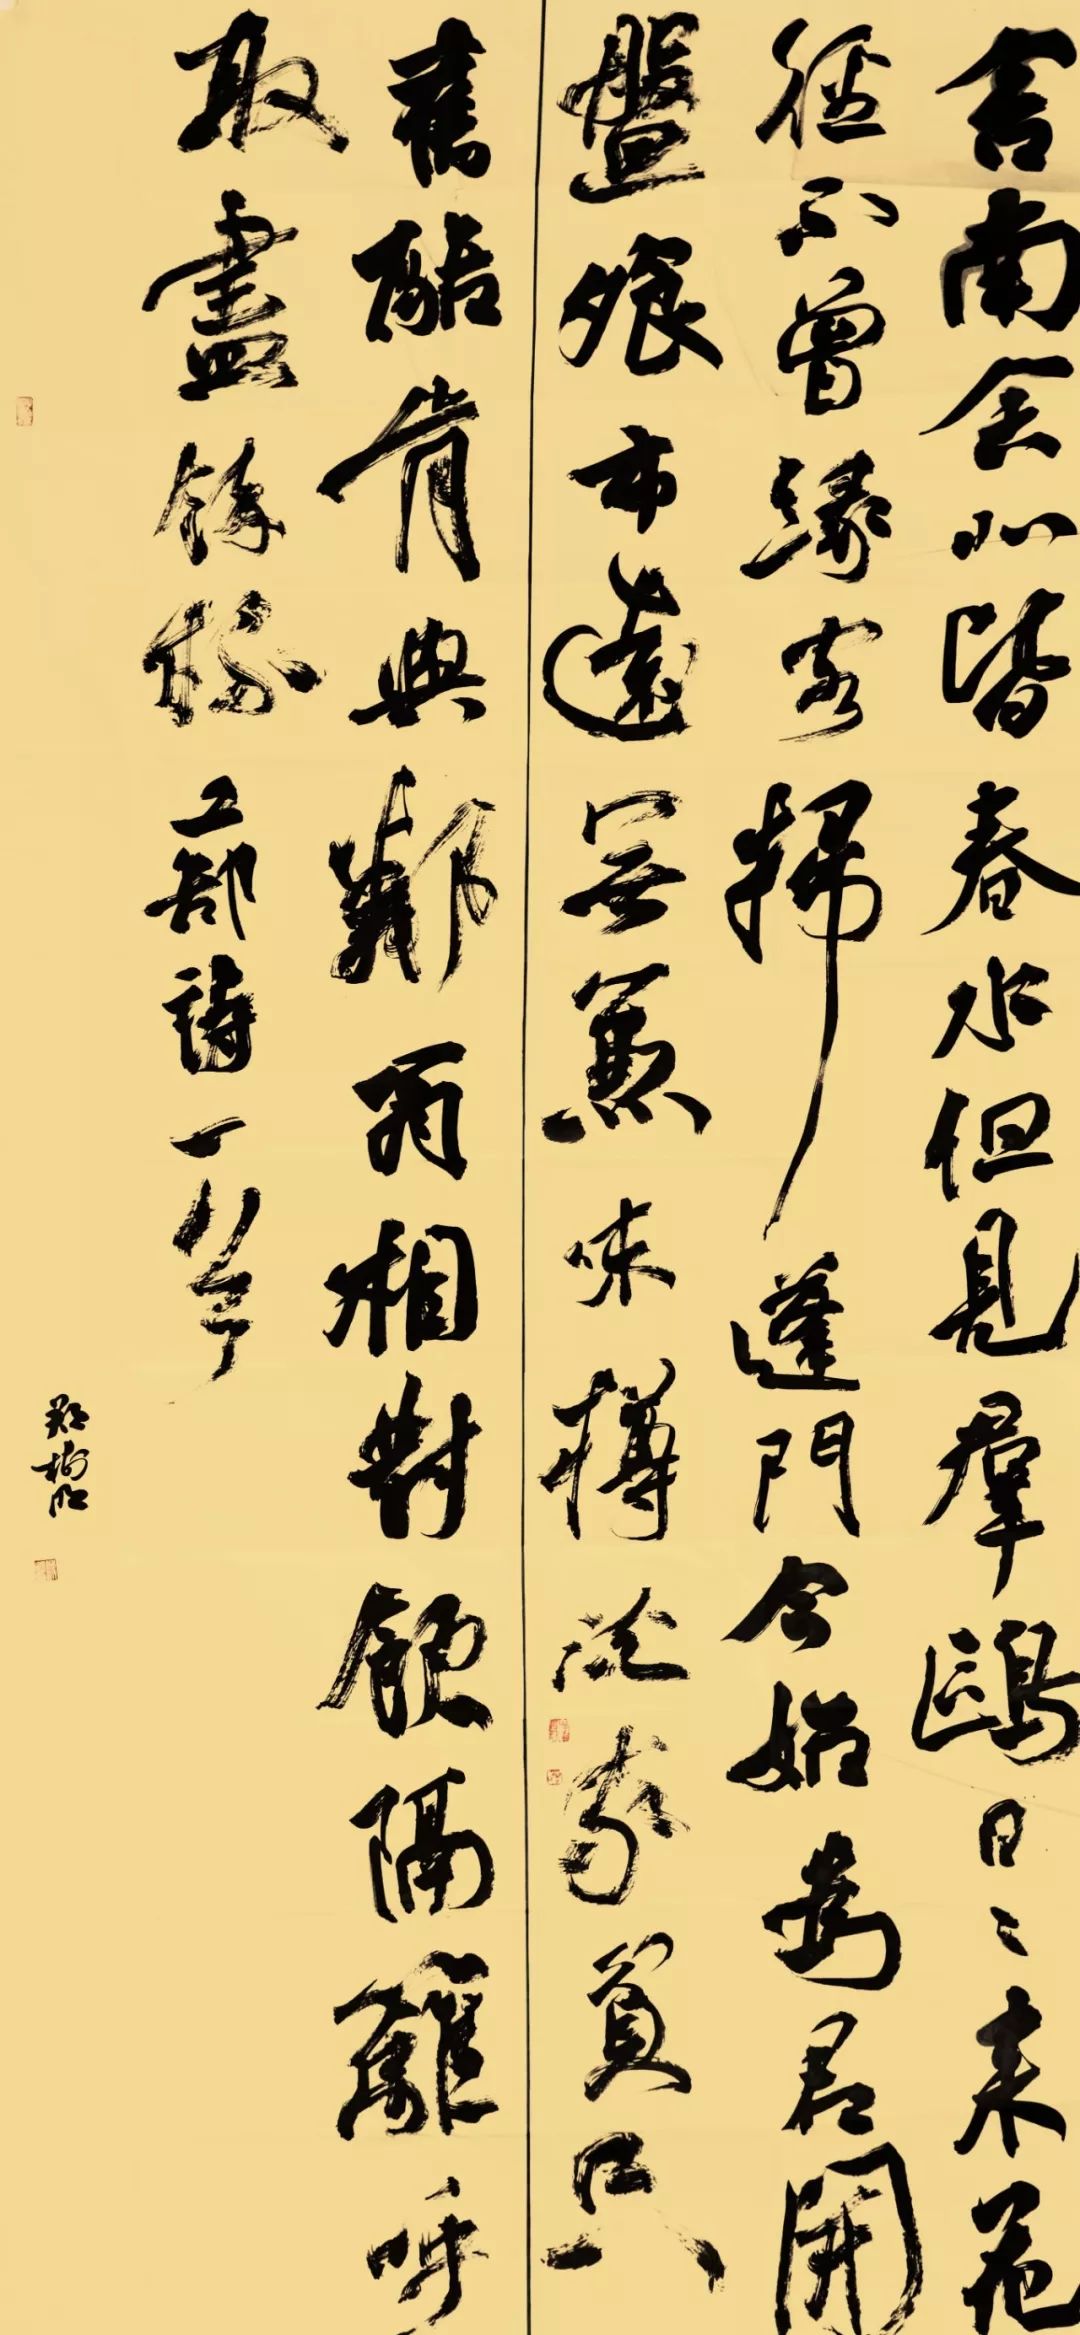 舍南舍北皆春水但見羣鷗日〻来花
徑不曾緣客掃蓬門今始為君開
盤飧市遠無兼味樽酒家貧只
舊醅肯與鄰翁相對飲隔籬呼
取盡餘杯工部詩一首